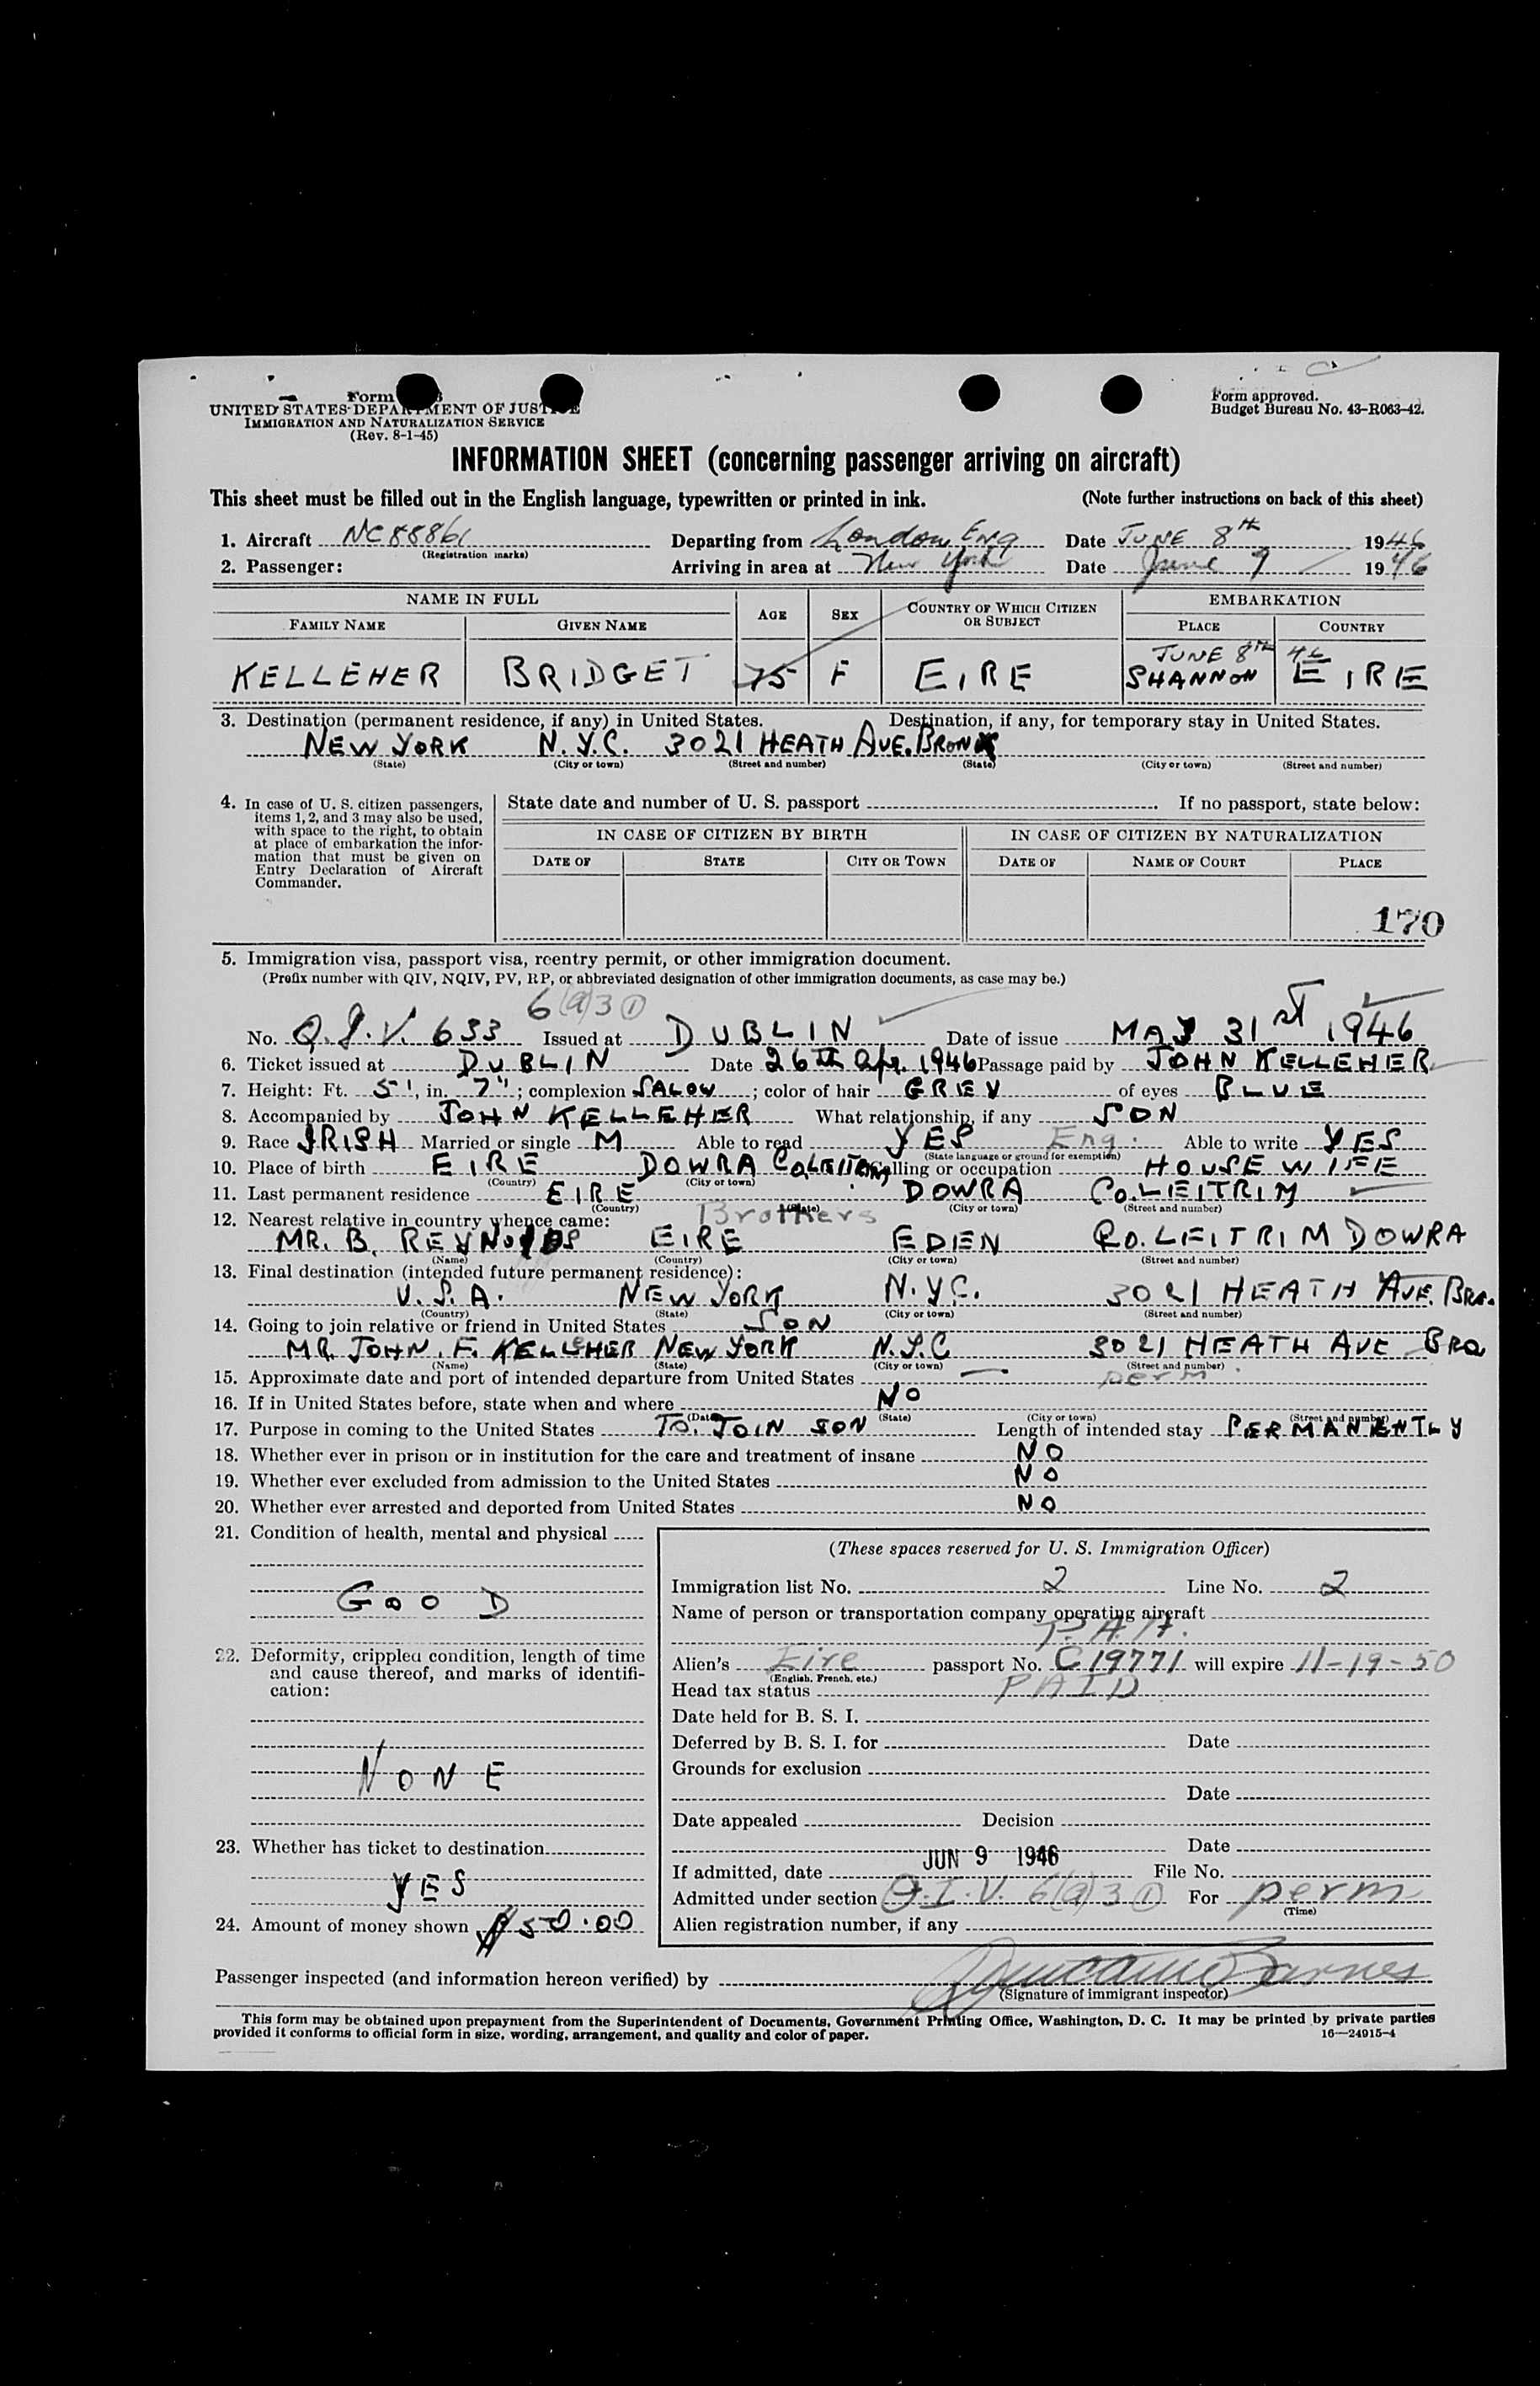 Form
UNITED STATES DEPARTMENT OF JUSTICE
IMMIGRATION AND NATURALIZATION SERVICE
(Rev. 8-1-45)
Form approved.
Budget Bureau No. 43-R063-42.
INFORMATION SHEET (concerning passenger arriving on aircraft)
This sheet must be filled out in the English language, typewritten or printed in ink. (Note further instructions on back of this sheet)
1. Aircraft NC88861 Departing from London, Eng Date JUNE 8th 1946
(Registration marks)
2. Passenger: Arriving in area at New York Date June 9 1946
NAME IN FULL AGE SEX COUNTRY OF WHICH CITIZEN OR SUBJECT EMBARKATION
FAMILY NAME GIVEN NAME PLACE COUNTRY
JUNE 8th 46
KELLEHER BRIDGET 75 F EIRE SHANNON EIRE
3. Destination (permanent residence, if any) in United States. Destination, if any, for temporary stay in United States.
NEW YORK N.Y.C. 3021 HEATH AVE. BRONX
(State) (City or town) (Street and number) (State) (City or town) (Street and number)
4. In case of U. S. citizen passengers,
items 1, 2, and 3 may also be used,
with space to the right, to obtain
at place of embarkation the infor-
mation that must be given on
Entry Declaration of Aircraft
Commander.
State date and number of U. S. passport If no passport, state below:
IN CASE OF CITIZEN BY BIRTH IN CASE OF CITIZEN BY NATURALIZATION
DATE OF STATE CITY OR TOWN DATE OF NAME OF COURT PLACE
170
5. Immigration visa, passport visa, reentry permit, or other immigration document.
(Prefix number with QIV, NQIV, PV, RP, or abbreviated designation of other immigration documents, as case may be.)
6(a)3(1)
No. Q.I.V. 633 Issued at DUBLIN Date of issue MAY 31st 1946
6. Ticket issued at DUBLIN Date 26th Apr. 1946 Passage paid by JOHN KELLEHER
7. Height: Ft. 5', in. 7"; complexion SALOW; color of hair GREY of eyes BLUE
8. Accompanied by JOHN KELLEHER What relationship, if any SON
9. Race IRISH Married or single M Able to read YES Eng. Able to write YES
(State language or ground for exemption)
10. Place of birth EIRE DOWRA CO. LEITRIM Calling or occupation HOUSEWIFE
(Country) (City or town)
11. Last permanent residence EIRE DOWRA CO. LEITRIM
(Country) (State) (City or town) (Street and number)
12. Nearest relative in country whence came: Brothers
MR. B. REYNOLDS EIRE EDEN CO. LEITRIM DOWRA
(Name) (Country) (City or town) (Street and number)
13. Final destination (intended future permanent residence):
U.S.A. NEW YORK N.Y.C. 3021 HEATH AVE. BRX.
(Country) (State) (City or town) (Street and number)
14. Going to join relative or friend in United States SON
MR. JOHN. F. KELLEHER NEW YORK N.Y.C 3021 HEATH AVE
(Name) (State) (City or town) (Street and number)
15. Approximate date and port of intended departure from United States — perm.
16. If in United States before, state when and where NO
(Date) (State) (City or town) (Street and number)
17. Purpose in coming to the United States TO. JOIN SON Length of intended stay PERMANENTLY
18. Whether ever in prison or in institution for the care and treatment of insane NO
19. Whether ever excluded from admission to the United States NO
20. Whether ever arrested and deported from United States NO
21. Condition of health, mental and physical
GOOD
22. Deformity, crippled condition, length of time
and cause thereof, and marks of identifi-
cation:
NONE
23. Whether has ticket to destination
YES
24. Amount of money shown $50.00
(These spaces reserved for U. S. Immigration Officer)
Immigration list No. 2 Line No. 2
Name of person or transportation company operating aircraft
P.A.A.
Alien's Eire passport No. C19771 will expire 11-19-50
(English, French, etc.)
Head tax status PAID
Date held for B. S. I.
Deferred by B. S. I. for Date
Grounds for exclusion
Date
Date appealed Decision
Date
If admitted, date JUN 9 1946 File No.
Admitted under section Q.I.V. 6(a)3(1) For perm
(Time)
Alien registration number, if any
Passenger inspected (and information hereon verified) by Barnes
(Signature of immigrant inspector)
This form may be obtained upon prepayment from the Superintendent of Documents, Government Printing Office, Washington, D. C. It may be printed by private parties
provided it conforms to official form in size, wording, arrangement, and quality and color of paper. 16—24915-4